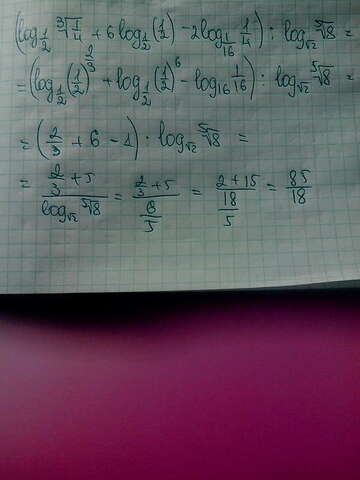 (log_{1/2} ∛(1/4) + 6 log_{1/2} (1/2) − 2 log_{1/16} 1/4) : log_{√2} ⁵√8 =
= (log_{1/2} (1/2)^{2/3} + log_{1/2} (1/2)^6 − log_{16} 1/16) : log_{√2} ⁵√8 =
= (2/3 + 6 − 1) · log_{√2} ⁵√8 =
= (2/3 + 5)/(log_{√2} ⁵√8) = (2/3 + 5)/(6/5) = (2 + 15)/(18/5) = 85/18